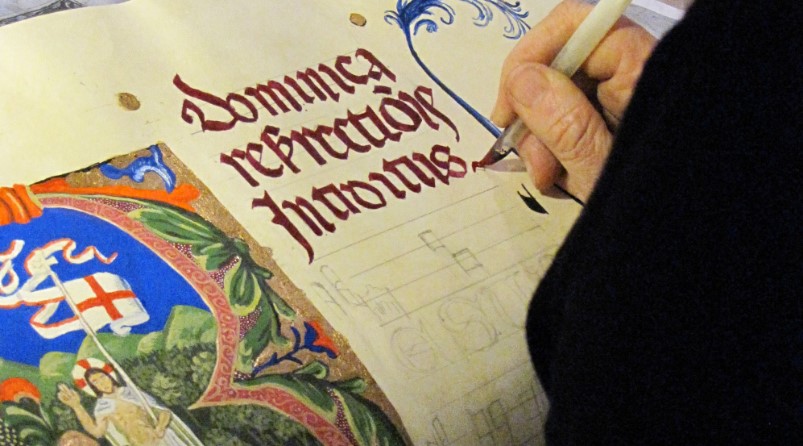 Dominica
resrectiōis
Introitus